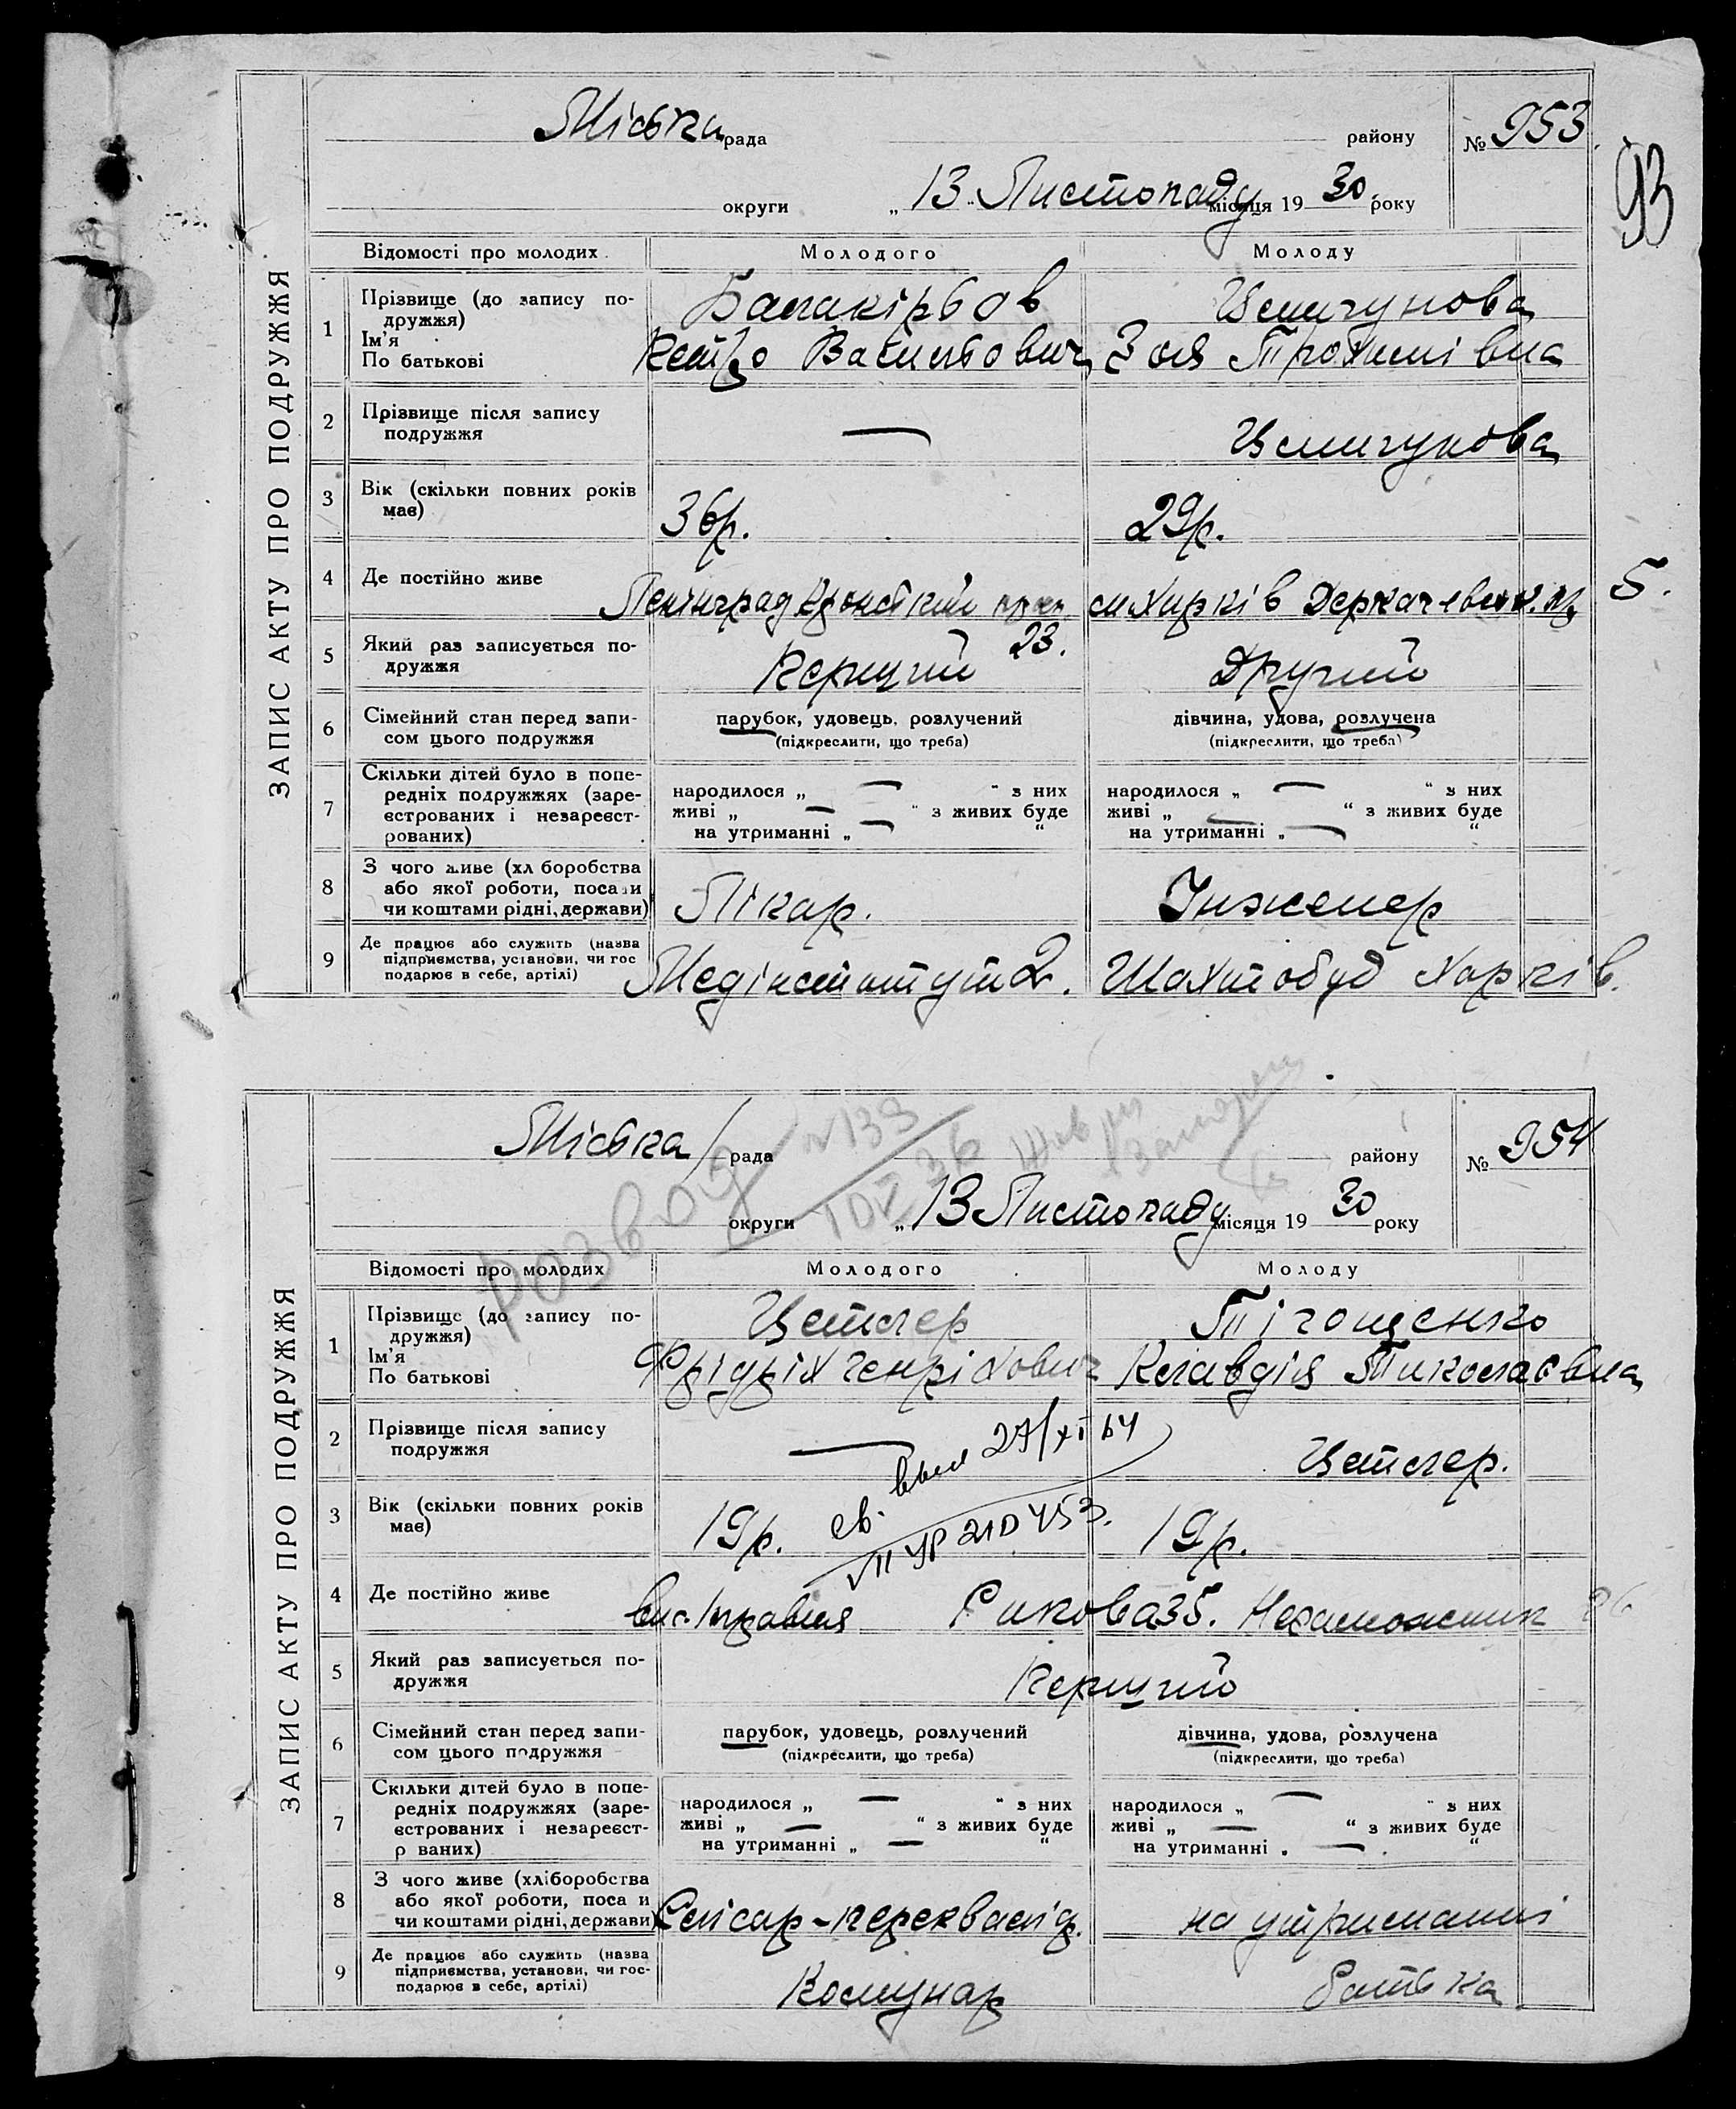 93
ЗАПИС АКТУ ПРО ПОДРУЖЖЯ
Міська рада району № 953
округи „13" Листопаду місяця 1930 року
Відомості про молодих Молодого Молоду
1 Прізвище (до запису подружжя)
Ім'я
По батькові
Петро Васильович Зоя Трохимівна
2 Прізвище після запису
подружжя —
3 Вік (скільки повних років
має) 36р. 29р.
4 Де постійно живе Ленінград Кронсткий 23. м Харків 5.
5 Який раз записується по-
дружжя Перший Другий
6 Сімейний стан перед запи-
сом цього подружжя
парубок, удовець, розлучений дівчина, удова, розлучена
(підкреслити, що треба) (підкреслити, що треба)
7 Скільки дітей було в попе-
редніх подружжях (заре-
єстрованих і незареєст-
рованих)
народилося „ — " з них народилося „ — " з них
живі „ — " з живих буде живі „ — " з живих буде
на утриманні „ — " на утриманні „ — "
8 З чого живе (хл боробства
або якої роботи, посади
чи коштами рідні, держави) Лікар. Інженер
9 Де працює або служить (назва
підприємства, установи, чи гос
подарює в себе, артілі) Медінститут 2. Шахтобуд Харків.
ЗАПИС АКТУ ПРО ПОДРУЖЖЯ
розвод №133
Міська рада району № 954
округи „13 Листопаду місяця 1930 року
Відомості про молодих Молодого Молоду
1 Прізвище (до запису по-
дружжя) Цетлер
Ім'я
По батькові
Фрідріх Генріхович Клавдія Миколаєвна
2 Прізвище після запису
подружжя — Цетлер.
св. выд 27/XI 64
VII УР 210453.
3 Вік (скільки повних років
має) 19р. 19р.
4 Де постійно живе Рикова 35. Незаможник
5 Який раз записується по-
дружжя Перший
6 Сімейний стан перед запи-
сом цього подружжя
парубок, удовець, розлучений дівчина, удова, розлучена
(підкреслити, що треба) (підкреслити, що треба)
7 Скільки дітей було в попе-
редніх подружжях (заре-
єстрованих і незареєст-
р ваних)
народилося „ — " з них народилося „ — " з них
живі „ — " з живих буде живі „ — " з живих буде
на утриманні „ — " на утриманні „ — "
8 З чого живе (хліборобства
або якої роботи, поса и
чи коштами рідні, держави) Слісар-перекваліф. на утриманні
9 Де працює або служить (назва
підприємства, установи, чи гос-
подарює в себе, артілі) Комунар батька